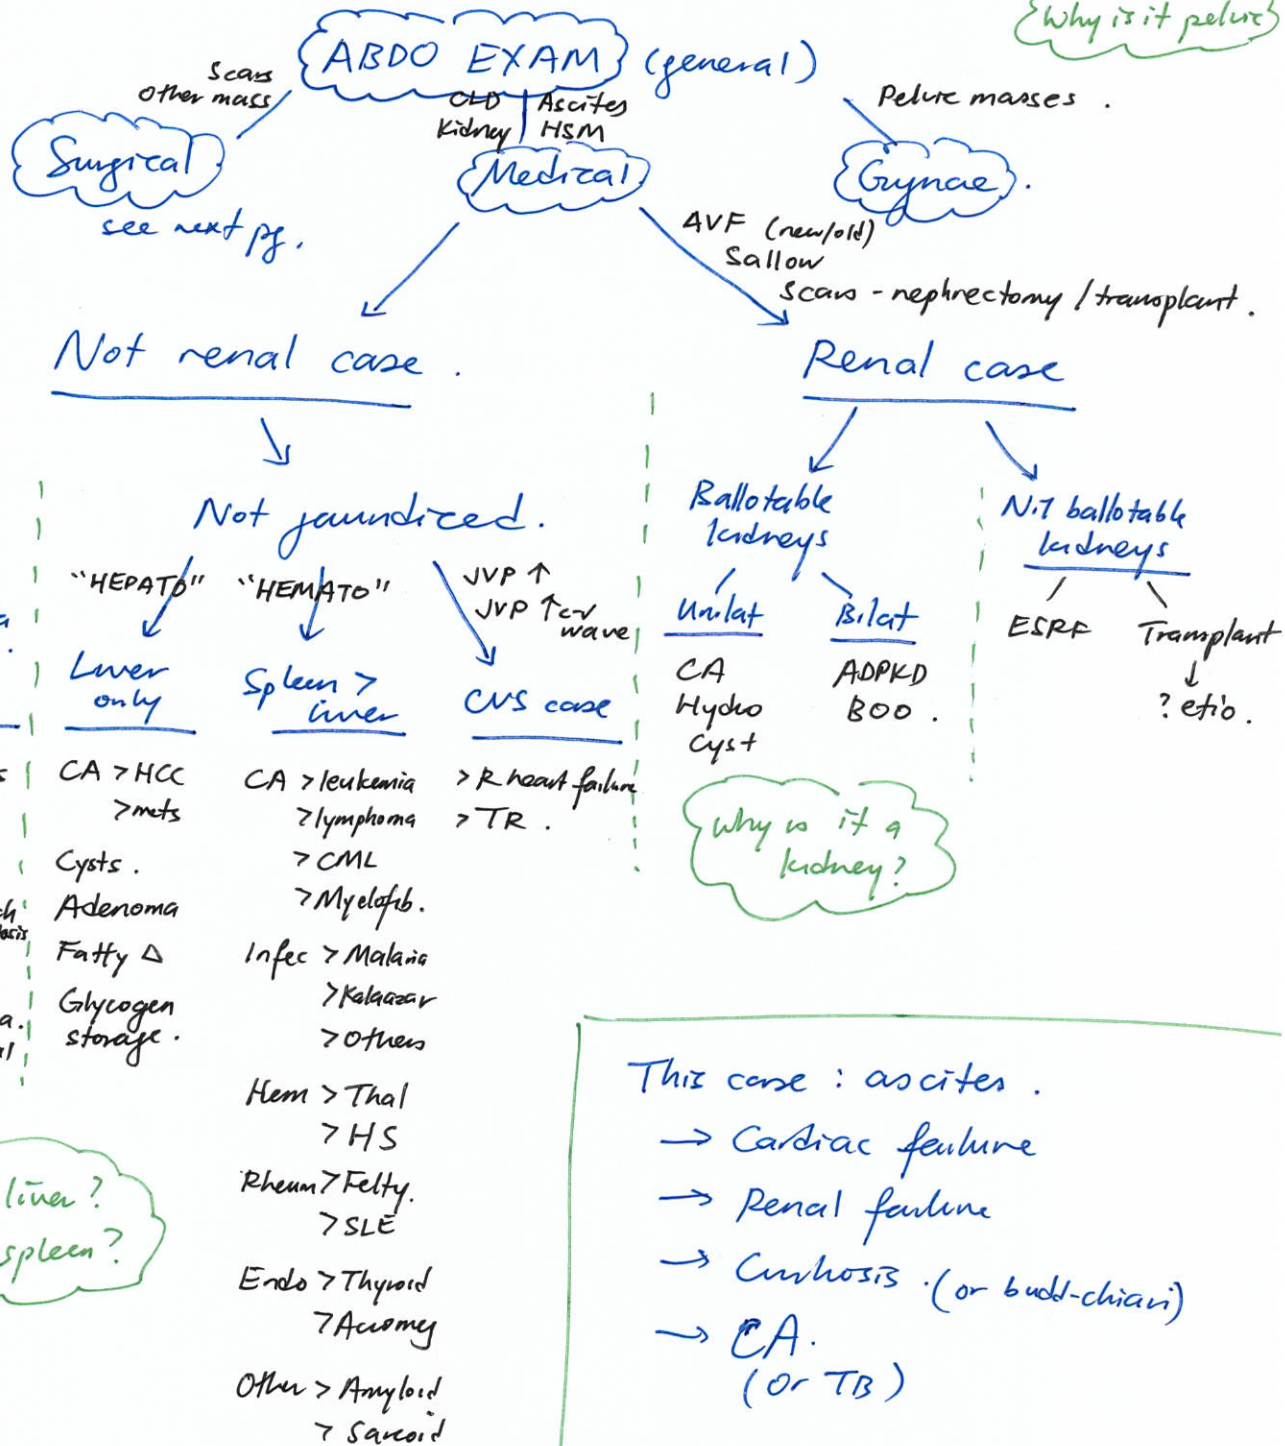 Why is it pelvic
ABDO EXAM (general)
Scars
Other mass
CLD | Ascites
Kidney | HSM
Pelvic masses .
Surgical
see next pg.
Medical
Gynae .
AVF (new/old)
Sallow
Scars - nephrectomy / transplant .
Not renal case .
Renal case
Not jaundiced .
"HEPATO"
"HEMATO"
JVP ↑
JVP ↑ c-v
wave
Liver
only
CA > HCC
> mets
Cysts .
Adenoma
Fatty Δ
Glycogen
storage .
Spleen >
liver
CA > leukemia
> lymphoma
> CML
> Myelofib.
Infec > Malaria
> Kalaazar
> Others
Hem > Thal
> HS
Rheum > Felty.
> SLE
Endo > Thyroid
> Acromeg
Other > Amyloid
> Sarcoid
CVS case
> R heart failure
> TR .
Ballotable
kidneys
Unilat
CA
Hydro
Cyst
Bilat
ADPKD
BOO .
Nil ballotable
kidneys
ESRF
Transplant
↓
? etio .
Why is it a
kidney ?
liver ?
spleen ?
This case : ascites .
→ Cardiac failure
→ Renal failure
→ Cirrhosis . (or budd-chiari)
→ CA .
(or TB)